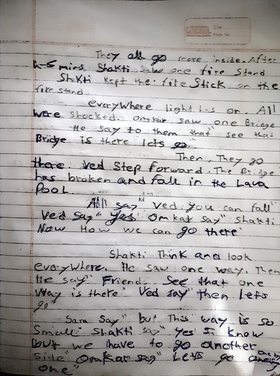 They all go more inside. After
4-5 mins. Shakti saw one fire stand
Shakti kept the fire stick on the
fire stand.
everyWhere light his on All
were shocked. Omkar saw one Bridge
He say to them that" see that
Bridge is there lets go.
Then They go
There. Ved Step forward. The Bridge
has broken and fall in the Lava
Pool.
All say" Ved, you can fall"
Ved Say" Yes! Omkar Say" Shakti
Now How we can go there"
Shakti Think and look
everywhere. He saw one way. Then
He say" Friend, see that one
way is there" Ved say" then Lets
go"
Sara say" but This way is so
small" Shakti say" Yes I know
but we have to go another
side" Omkar say" Lets go
one"